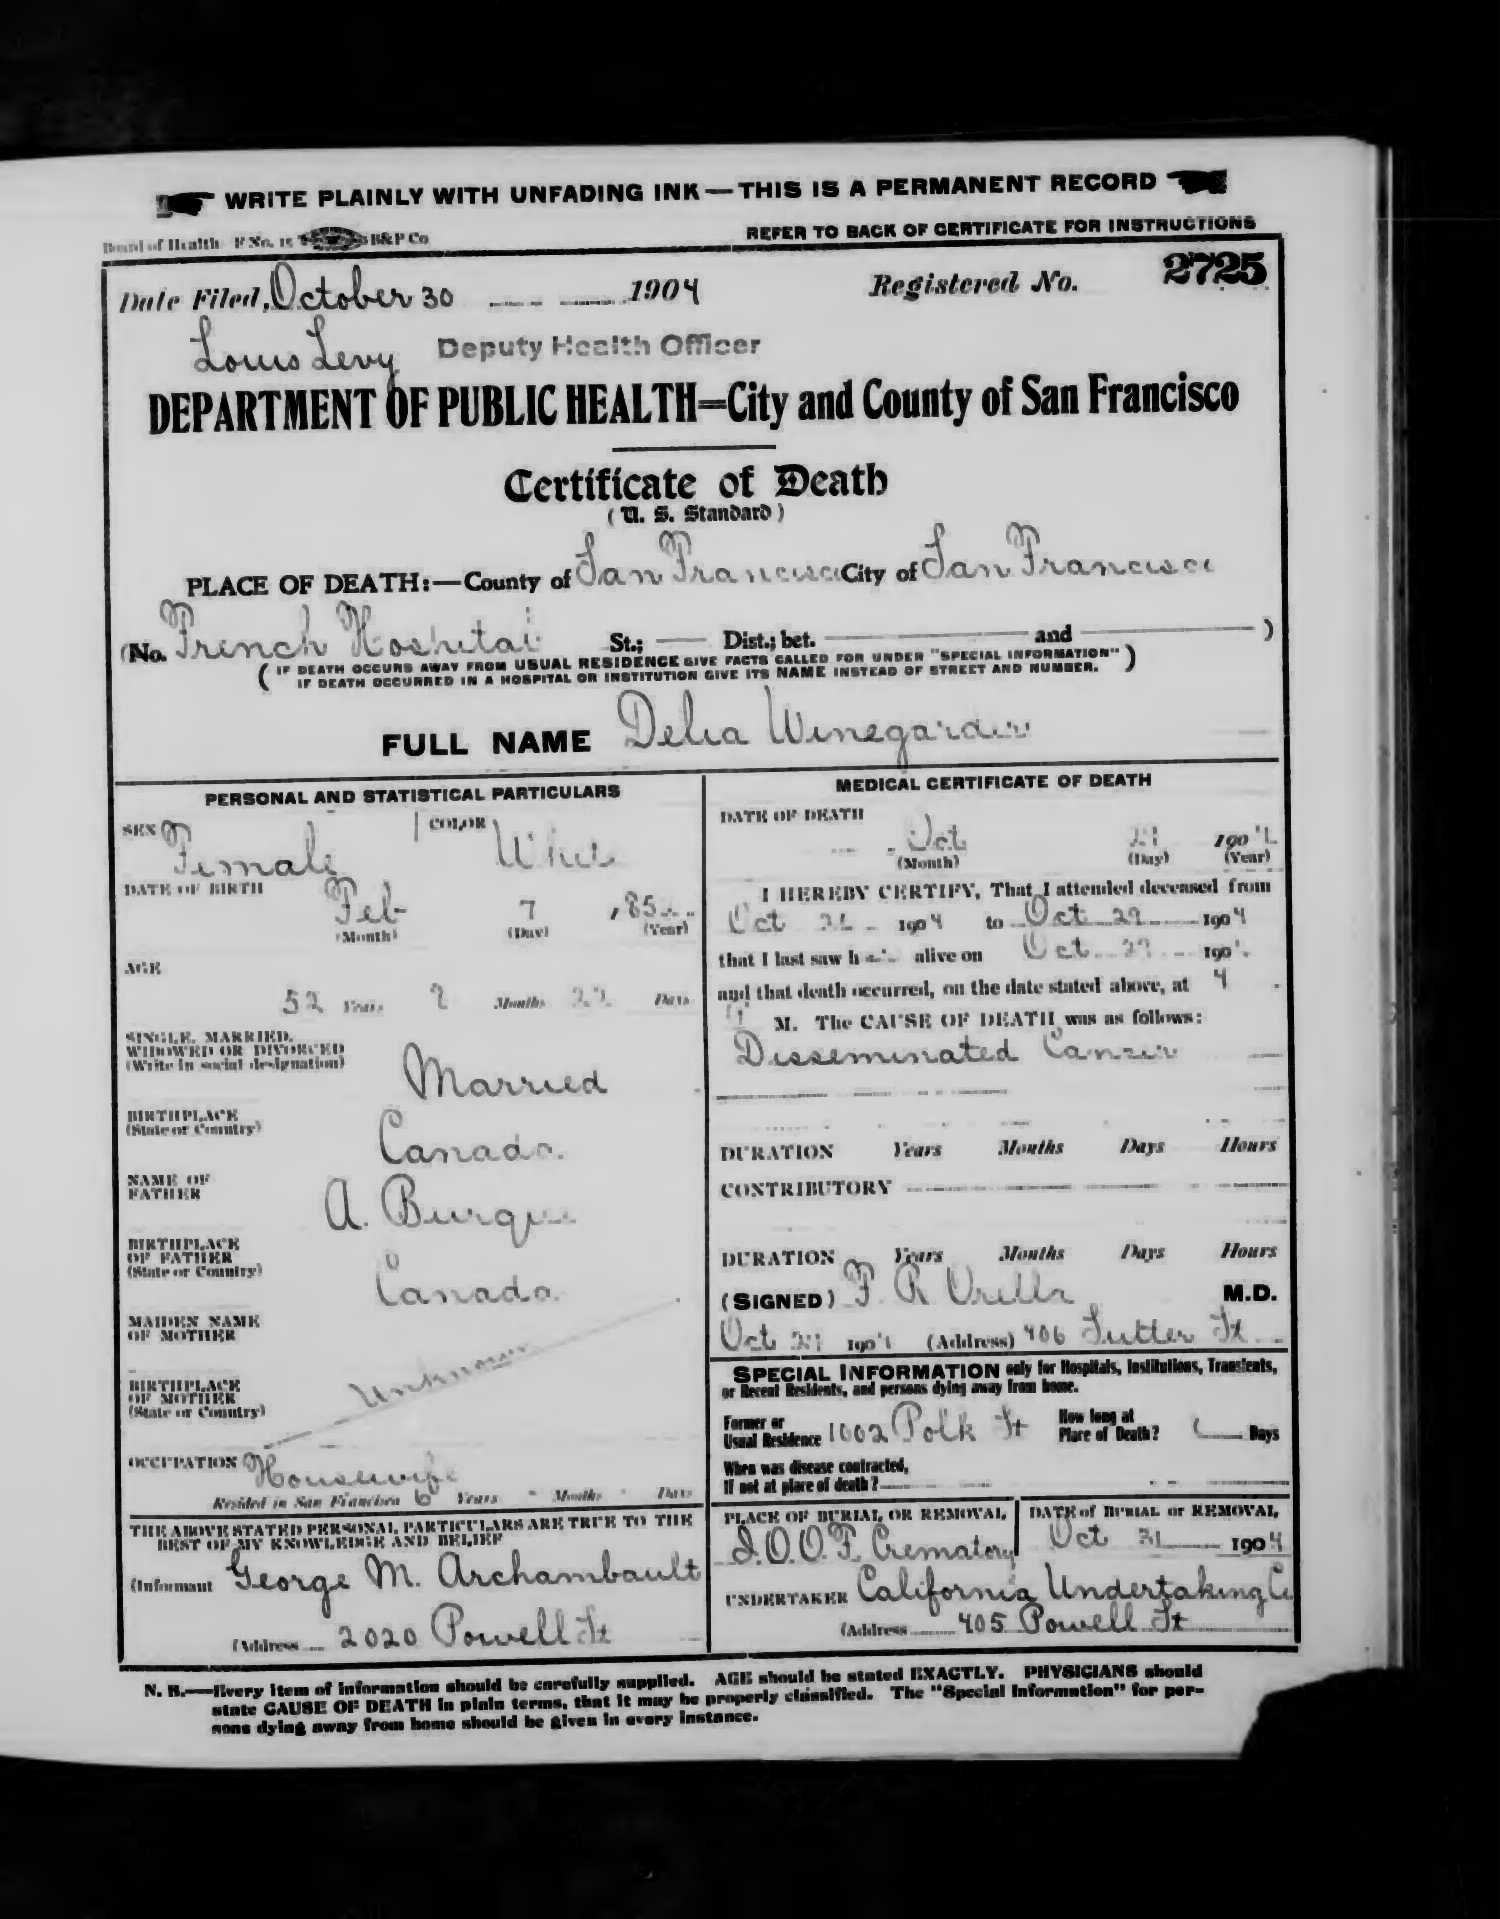 WRITE PLAINLY WITH UNFADING INK — THIS IS A PERMANENT RECORD
Board of Health F No. 15 B&P Co
REFER TO BACK OF CERTIFICATE FOR INSTRUCTIONS
Date Filed, October 30 1904 Registered No. 2725
Louis Levy Deputy Health Officer
DEPARTMENT OF PUBLIC HEALTH=City and County of San Francisco
Certificate of Death
(U. S. Standard)
PLACE OF DEATH:—County of San Francisco City of San Francisco
(No. French Hospital St.; Dist.; bet. and )
( IF DEATH OCCURS AWAY FROM USUAL RESIDENCE GIVE FACTS CALLED FOR UNDER "SPECIAL INFORMATION" )
IF DEATH OCCURRED IN A HOSPITAL OR INSTITUTION GIVE ITS NAME INSTEAD OF STREET AND NUMBER.
FULL NAME Delia Winegarder
PERSONAL AND STATISTICAL PARTICULARS
SEX Female COLOR White
DATE OF BIRTH
Feb 7 , 185
(Month) (Day) (Year)
AGE
52 Years 8 Months 22 Days
SINGLE, MARRIED,
WIDOWED OR DIVORCED
(Write in social designation)
Married
BIRTHPLACE
(State or Country)
Canada.
NAME OF
FATHER
A. Burque
BIRTHPLACE
OF FATHER
(State or Country)
Canada
MAIDEN NAME
OF MOTHER
Unknown
BIRTHPLACE
OF MOTHER
(State or Country)
OCCUPATION Housewife
Resided in San Francisco 6 Years - Months - Days
THE ABOVE STATED PERSONAL PARTICULARS ARE TRUE TO THE
BEST OF MY KNOWLEDGE AND BELIEF
(Informant George M. Archambault
(Address 2020 Powell St
MEDICAL CERTIFICATE OF DEATH
DATE OF DEATH
Oct 29 1904
(Month) (Day) (Year)
I HEREBY CERTIFY, That I attended deceased from
Oct 1904 to Oct 29 1904
that I last saw h alive on Oct 29 190
and that death occurred, on the date stated above, at 4
M. The CAUSE OF DEATH was as follows:
Disseminated Cancer
DURATION Years Months Days Hours
CONTRIBUTORY
DURATION Years Months Days Hours
(SIGNED) F. R. Orella M.D.
Oct 29 1904 (Address) 406 Sutter St
SPECIAL INFORMATION only for Hospitals, Institutions, Transients,
or Recent Residents, and persons dying away from home.
Former or
Usual Residence 1002 Polk St
How long at
Place of Death? Days
When was disease contracted,
If not at place of death?
PLACE OF BURIAL OR REMOVAL
I.O.O.F. Crematory
DATE of BURIAL or REMOVAL
Oct 31 1904
UNDERTAKER California Undertaking Co
(Address 405 Powell St
N. B.—Every item of information should be carefully supplied. AGE should be stated EXACTLY. PHYSICIANS should
state CAUSE OF DEATH in plain terms, that it may be properly classified. The "Special Information" for per-
sons dying away from home should be given in every instance.